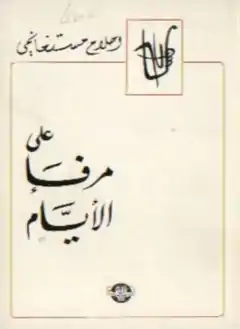 أحلام مستغانمي
على
مرفأ
الأيام